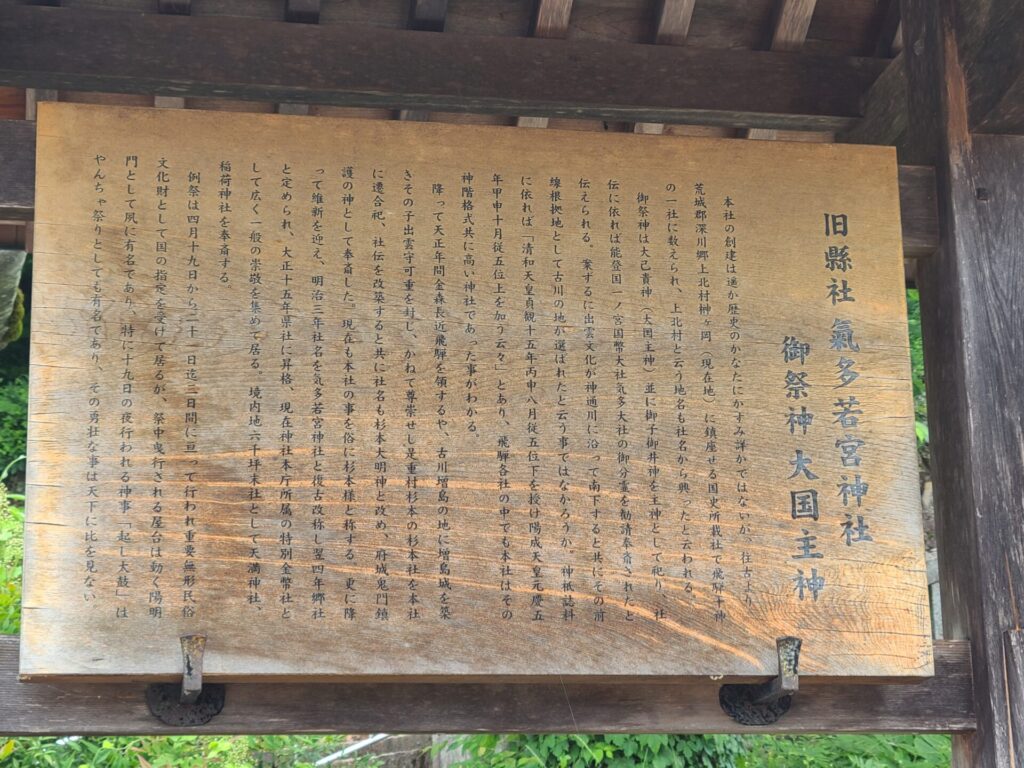 旧縣社氣多若宮神社
御祭神大国主神
本社の創建は遥か歴史のかなたにかすみ詳かではないが、往古より
荒城郡深川郷上北村榊ヶ岡（現在地）に鎮座せる国史所載社で飛騨十神
の一社に数えられ、上北村と云う地名も社名から興ったと云われる。
御祭神は大己貴神（大国主神）並に御子御井神を主神として祀り、社
伝に依れば能登国一ノ宮国幣大社気多大社の御分霊を勧請奉斎されたと
伝えられる。案するに出雲文化が神通川に沿って南下すると共にその前
線根拠地として古川の地が選ばれたと云う事ではなかろうか。神祇誌料
に依れば「清和天皇貞観十五年丙申八月従五位下を授け陽成天皇元慶五
年甲申十月従五位上を加う云々」とあり、飛騨各社の中でも本社はその
神階格式共に高い神社であった事がわかる。
降って天正年間金森長近飛騨を領するや、古川増島の地に増島城を築
きその子出雲守可重を封し、かねて尊崇せし是重村杉本の杉本社を本社
に遷合祀、社伝を改築すると共に社名も杉本大明神と改め、府城鬼門鎮
護の神として奉斎した。現在も本社の事を俗に杉本様と称する。更に降
って維新を迎え、明治三年社名を気多若宮神社と復古改称し翌四年郷社
と定められ、大正十五年県社に昇格、現在神社本庁所属の特別金幣社と
して広く一般の崇敬を集めて居る。境内地六千坪末社として天満神社、
稲荷神社を奉斎する。
例祭は四月十九日から二十一日迄三日間に亘って行われ重要無形民俗
文化財として国の指定を受けて居るが、祭中曳行される屋台は動く陽明
門として夙に有名であり、特に十九日の夜行われる神事「起し太鼓」は
やんちゃ祭りとしても有名であり、その勇壮な事は天下に比を見ない